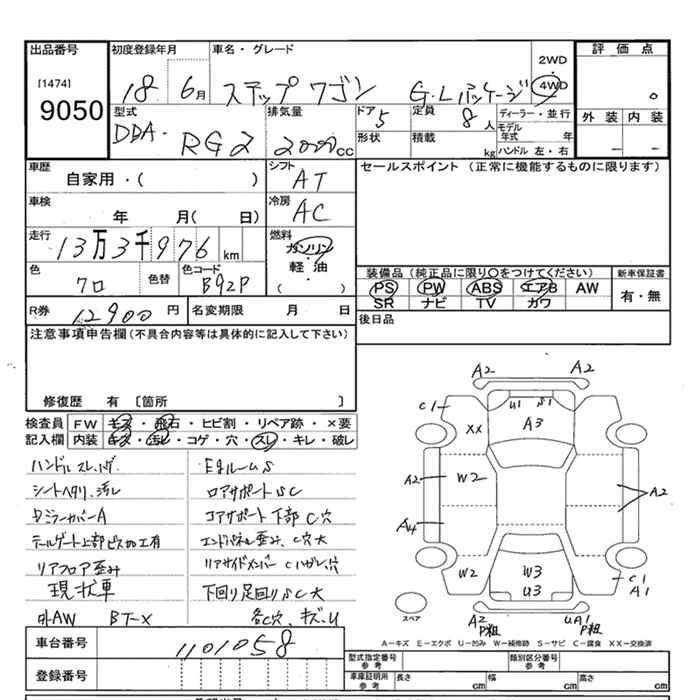 出品番号
初度登録年月
車名・グレード
評価点
[1474]
9050
18 6月
ステップワゴン G・Lパッケージ
2WD
4WD
型式
排気量
ドア
定員
ディーラー・並行
外装 内装
DBA-RG2
2000cc
5
8人
モデル年式 年
形状
積載 kg
ハンドル 左・右
車歴
自家用・( )
シフト
AT
セールスポイント (正常に機能するものに限ります)
車検
年 月( 日)
冷房
AC
走行
13万3千976km
燃料
ガソリン
・
軽油
( )
色
クロ
色替
色コード
B92P
装備品(純正品に限り○をつけてください)
新車保証書
PS PW ABS エアB AW
SR ナビ TV カワ
有・無
R券
12900円
名変期限 月 日
後日品
注意事項申告欄(不具合内容等は具体的に記入して下さい)
修復歴 有 〔箇所 〕
検査員
記入欄
FW キズ・飛石・ヒビ割・リペア跡・×要
内装 キズ・汚レ・コゲ・穴・スレ・キレ・破レ
シートヘタリ、汚レ
ロアサポートSC
DミラーカバーA
コアサポート下部C穴
テールゲート上部ビス加工有
リアフロア歪み
現状車
下回り足回りSC大
外AW BT-X
各C穴、キズ・U
A2 A2
C1
U1 S1
XX
A3
A2
W2
A2
A4
W2
W3
U3
C1
A1
A2
P粗
UA1
P粗
スペア
A-キズ E-エクボ U-凹み W-補修跡 S-サビ C-腐食 XX-交換済
車台番号
1101058
登録番号
型式指定番号
参考
類別区分番号
参考
車庫証明用
参考
長さ cm
幅 cm
高さ cm